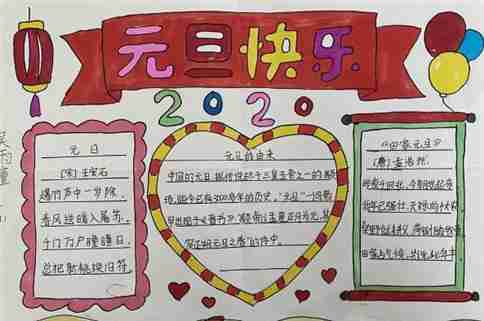 元旦快乐
2020
元日
[宋]王安石
爆竹声中一岁除,
春风送暖入屠苏。
千门万户曈曈日,
总把新桃换旧符。
元旦的由来
中国的元旦,据传说起于三皇五帝之一的颛
顼,距今已有3000多年的历史。"元旦"一词最
早出现于《晋书》:"颛帝以孟夏正月为元,其
实正朔元旦之春"的诗中。
《田家元旦》
(唐)孟浩然
昨夜斗回北,今朝岁起东
我年已强仕,无禄尚忧农
田家占气候,共说此年丰